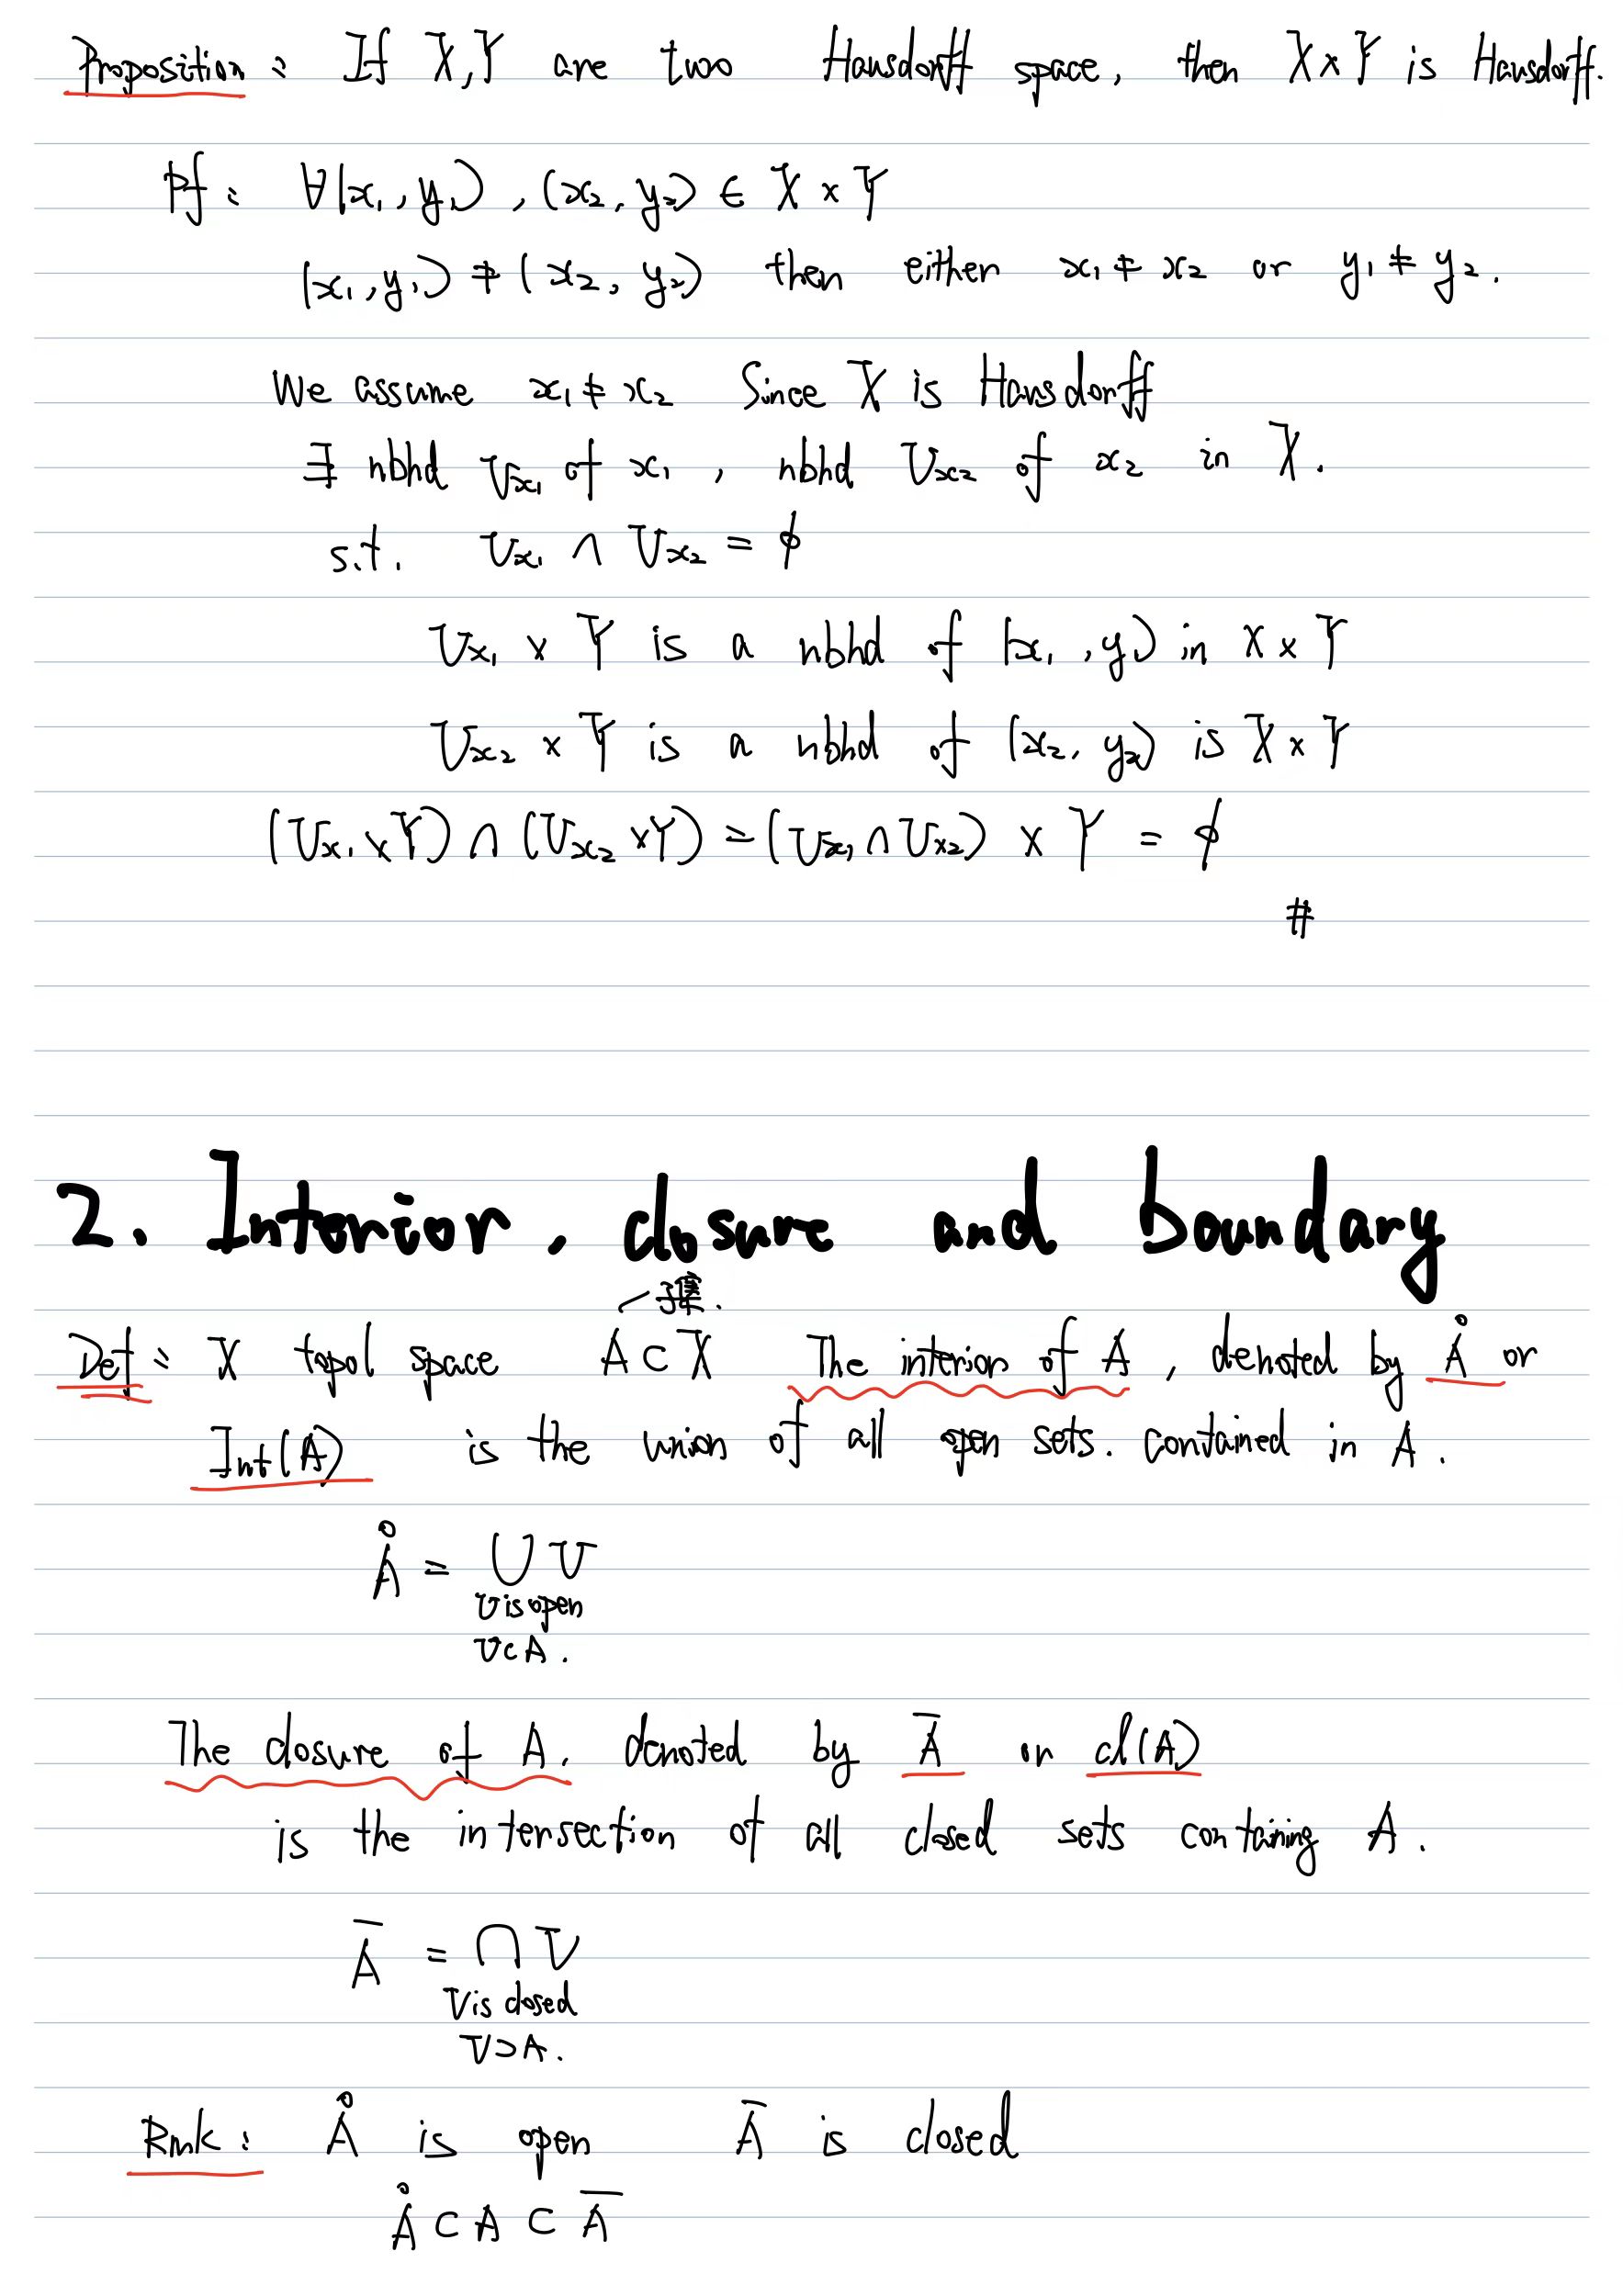 Proposition: If X,Y are two Hausdorff space, then X×Y is Hausdorff.
Pf: ∀(x₁,y₁),(x₂,y₂) ∈ X×Y
(x₁,y₁) ≠ (x₂,y₂) then either x₁≠x₂ or y₁≠y₂.
We assume x₁≠x₂ Since X is Hausdorff
∃ nbhd Uₓ₁ of x₁, nbhd Uₓ₂ of x₂ in X.
s.t. Uₓ₁ ∩ Uₓ₂ = ϕ
Uₓ₁ × Y is a nbhd of (x₁,y₁) in X×Y
Uₓ₂ × Y is a nbhd of (x₂,y₂) is X×Y
(Uₓ₁×Y) ∩ (Uₓ₂×Y) = (Uₓ₁∩Uₓ₂) × Y = ϕ
#
2. Interior, closure and boundary
子集.
Def: X topol space A⊂X The interior of A, denoted by Å or
Int(A) is the union of all open sets. contained in A.
Å = ∪ U
U is open
U⊂A.
The closure of A. denoted by Ā or cl(A)
is the intersection of all closed sets containing A.
Ā = ∩ V
V is closed
V⊃A.
Rmk: Å is open Ā is closed
Å⊂A⊂Ā